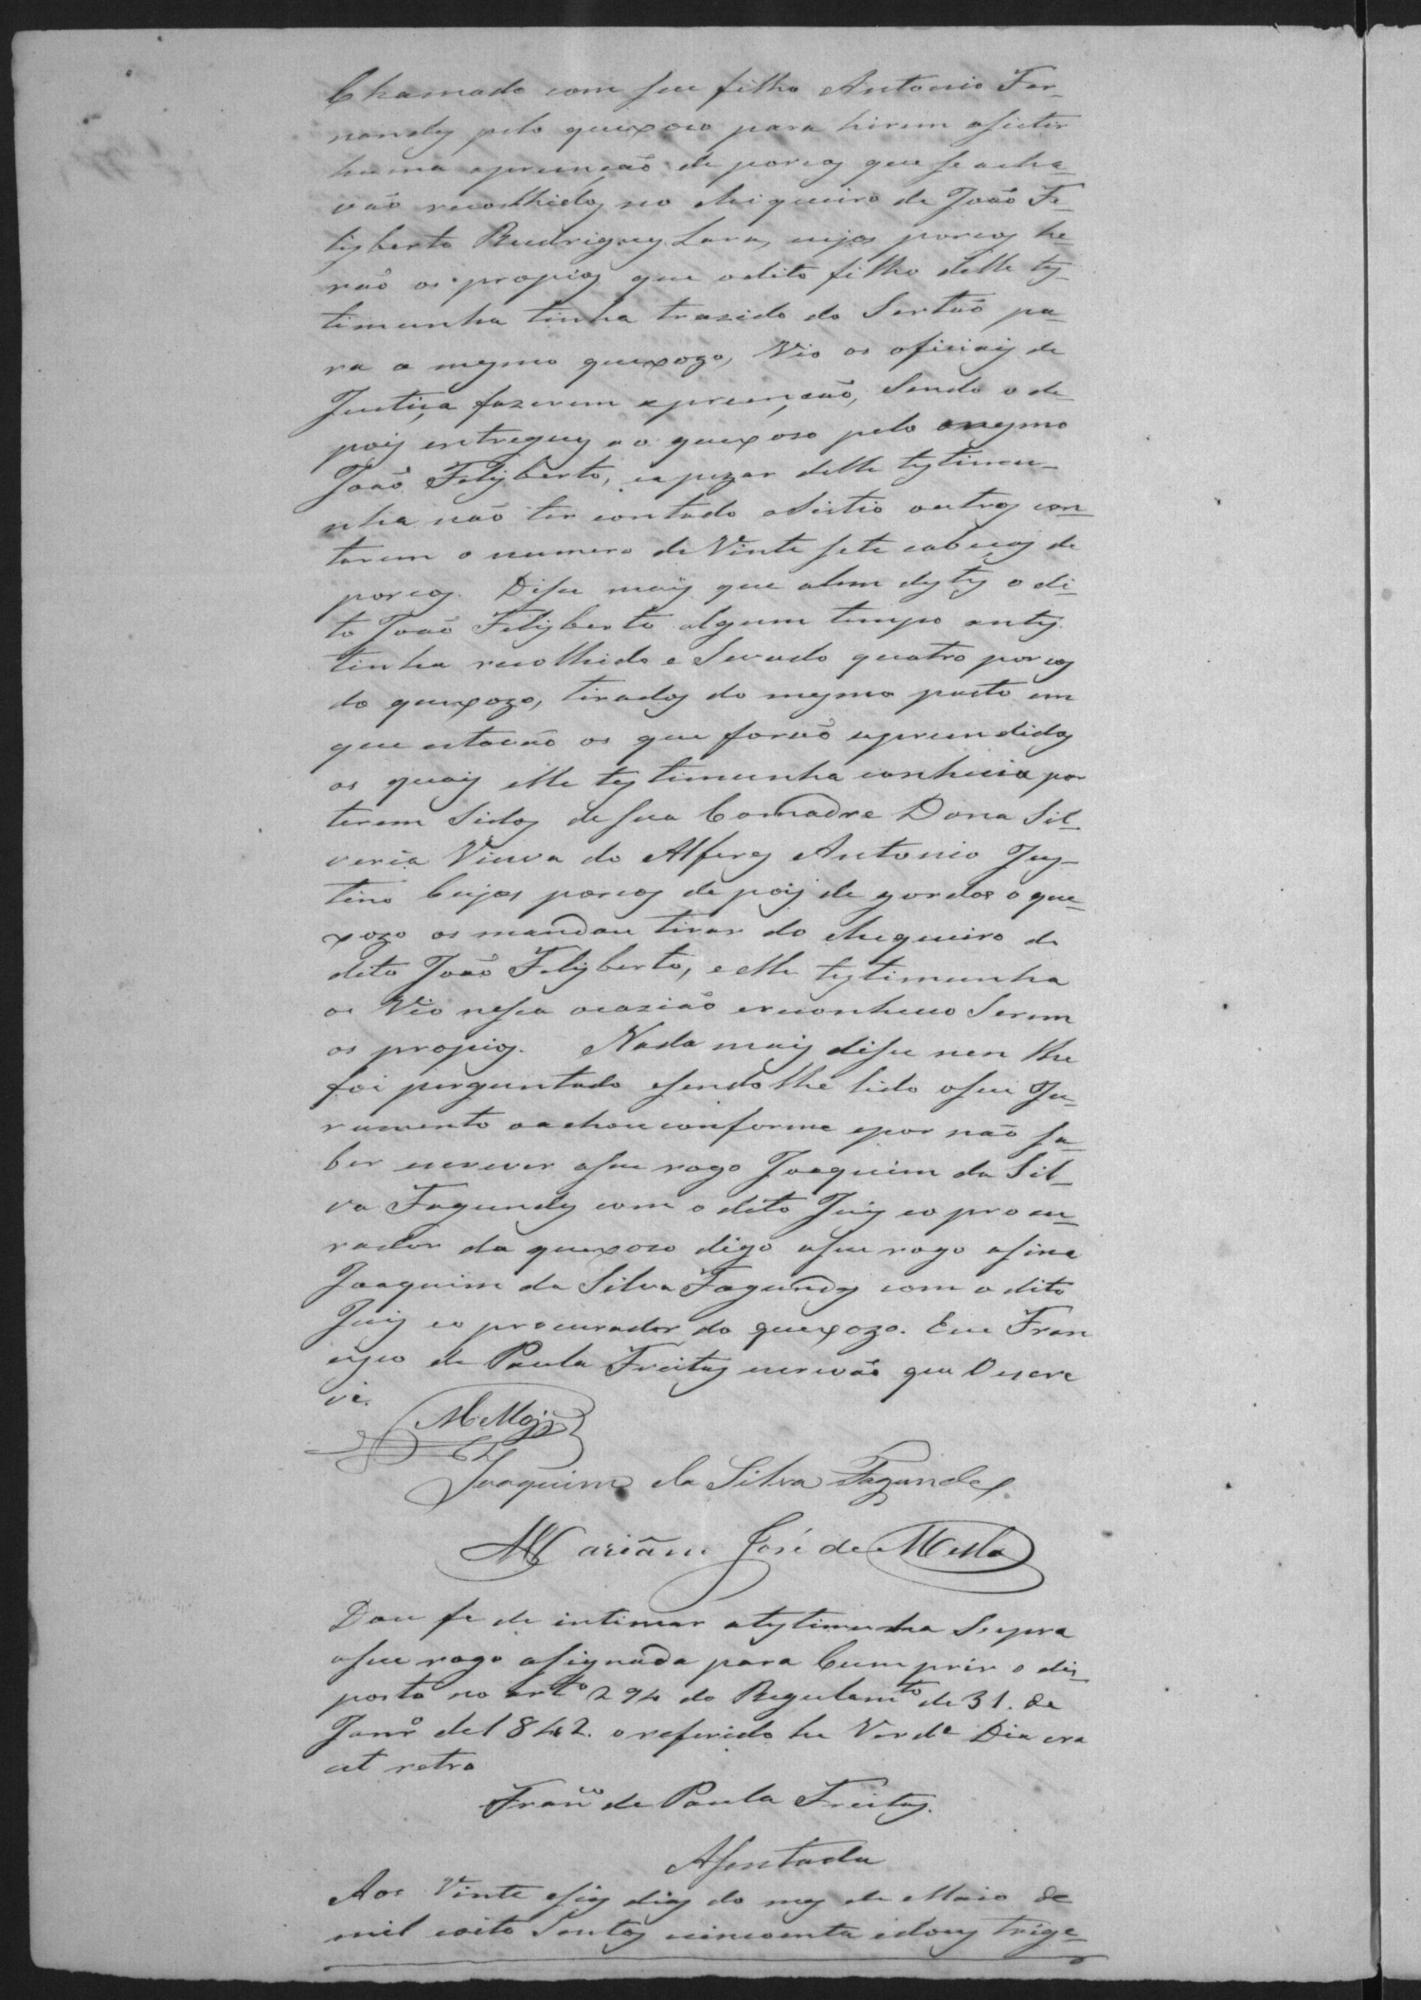 Chamado com seu filho Antonio Fer-
nandes pelo queixozo para hirem asistir
huma aprenção de porcos que se acha-
vão recolhidos no chiqueiro de João Fe-
lisberto Rudrigues Lara, cujos porcos he-
rão os propios que odito filho delle tes-
timunha tinha trazido do Sertão pa-
ra o mesmo queixozo, Vio os oficiais de
Justiça fazerem aprenção, Sendo o de
pois entregues ao queixoso pelo mesmo
João Felisberto, e apezar delle testimu-
nha não ter contado asistio outros con-
tarem o numero de Vinte sete cabeças de
porcos. Dise mais que alem destes o di-
to João Felisberto algum tempo antes
tinha recolhido e Sevado quatro porcos
do queixozo, tirados do mesmo pasto em
que estavão os que forão aprendidos
os quais elle testimunha conhecia por
terem Sidos de sua Comadre Dona Sil-
veria Viuva do Alferes Antonio Jus-
tino Cujos porcos depois de gordos o que-
xozo os mandou tirar do chiqueiro do
dito João Felisberto, e elle testimunha
os Vio nesca ocazião ereconheceo Serem
os propios. Nada mais dise nen lhe
foi perguntado esendolhe lido oseu Ju-
ramento oachou conforme epor não sa-
ber escrever aseu rogo Joaquim da Sil-
va Fagundes com o dito Juis eo procu-
rador da quexoso digo aseu rogo asina
Joaquim da Silva Fagundes com o dito
Juis eo procurador do quexozo. Eu Fran
cisco de Paula Freitas escrivão que Oescre
vi.
Joaquim da Silva Fagundes.
Mariano José de Mello
Dou fe de intimar atestimunha Supra
aseu rogo asignada para Cumprir o dis-
posto no art.º 294 do Regulam.to de 31. de
Janr.º de 1842. oreferido he Verd.e Dia era
ut retro
Fran.co de Paula Freitas.
Asentada
Aos Vinte eseis dias do mes de Maio de
mil eoito Sentos cincoenta edous trige-